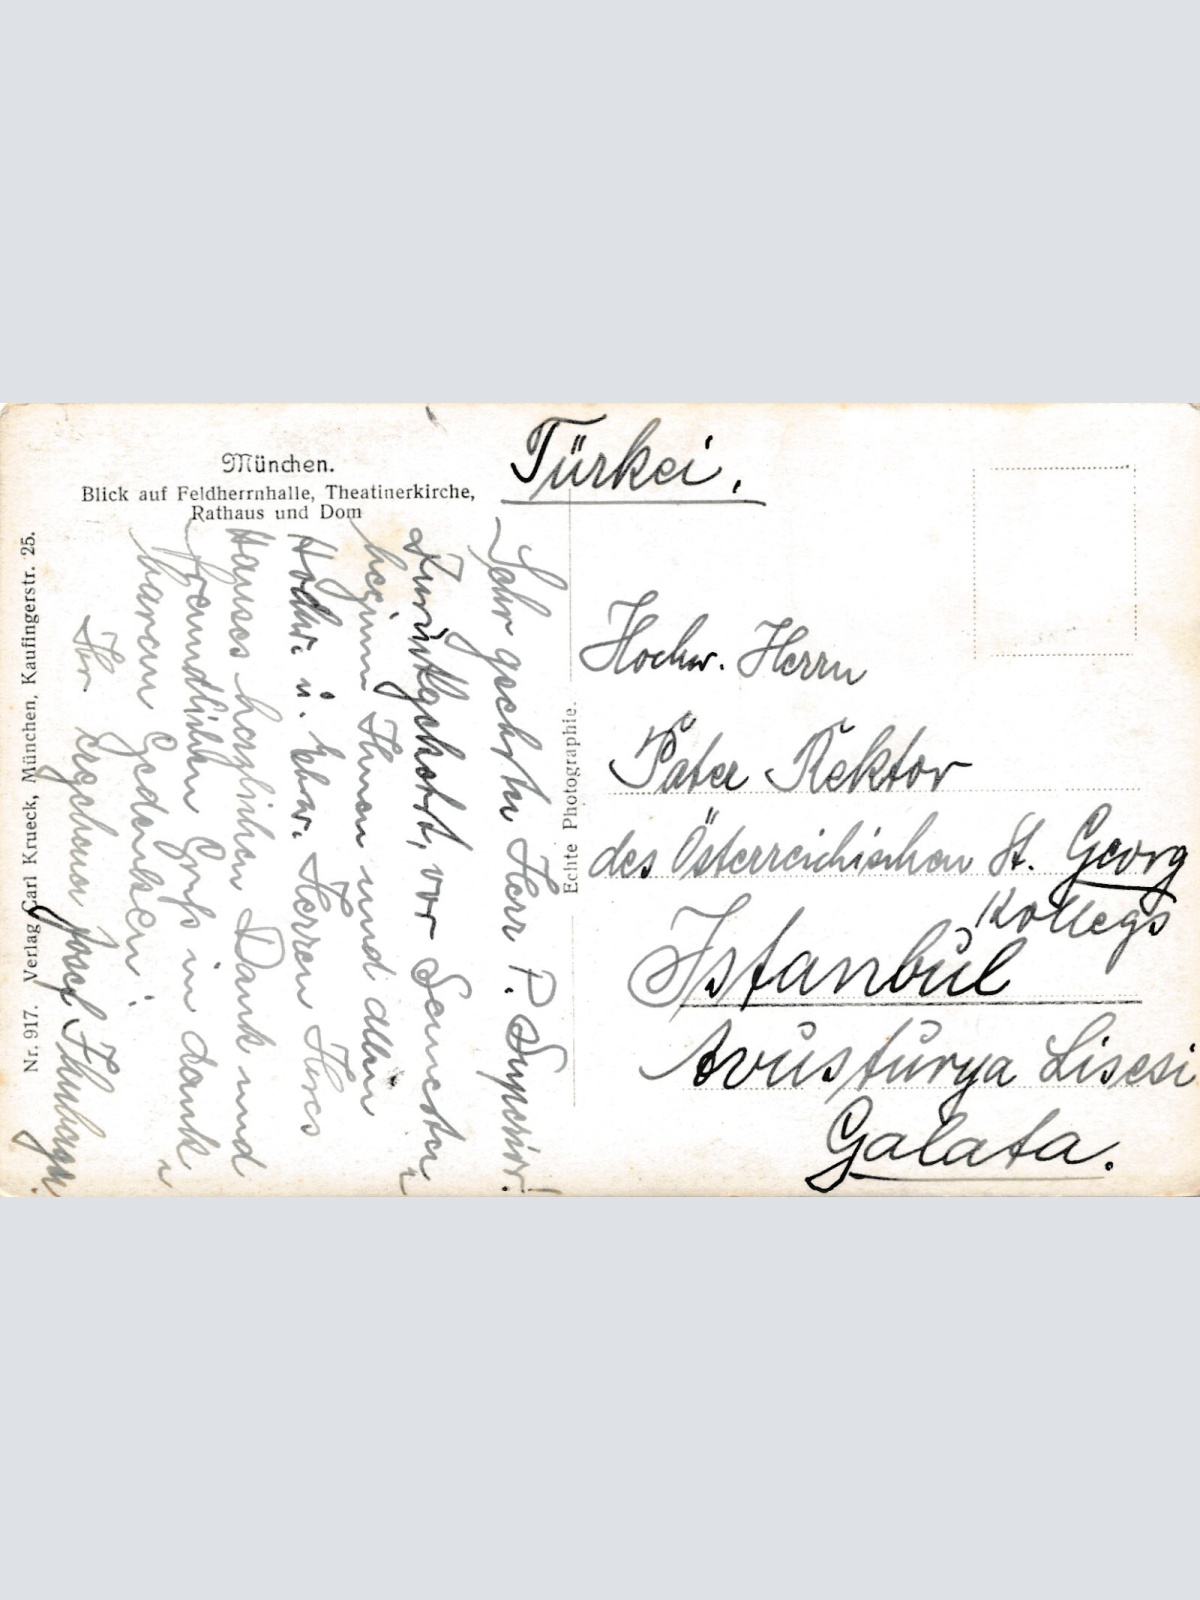 München.
Blick auf Feldherrnhalle, Theatinerkirche,
Rathaus und Dom
Türkei.
Sehr geehrter Herr P. Superior!
Zurückgekehrt, vor Semester-
beginn Ihnen und allen
Hochw. u. Ehrw. Herren Ihres
Hauses herzlichen Dank und
freundlichen Gruß in dank-
barem Gedenken!
Ihr ergebener Josef
Hochw. Herrn
Pater Rektor
des Österreichischen St. Georg
Kollegs
Istanbul
Avusturya Lisesi
Galata.
Echte Photographie.
Nr. 917. Verlag Carl Krueck, München, Kaufingerstr. 25.